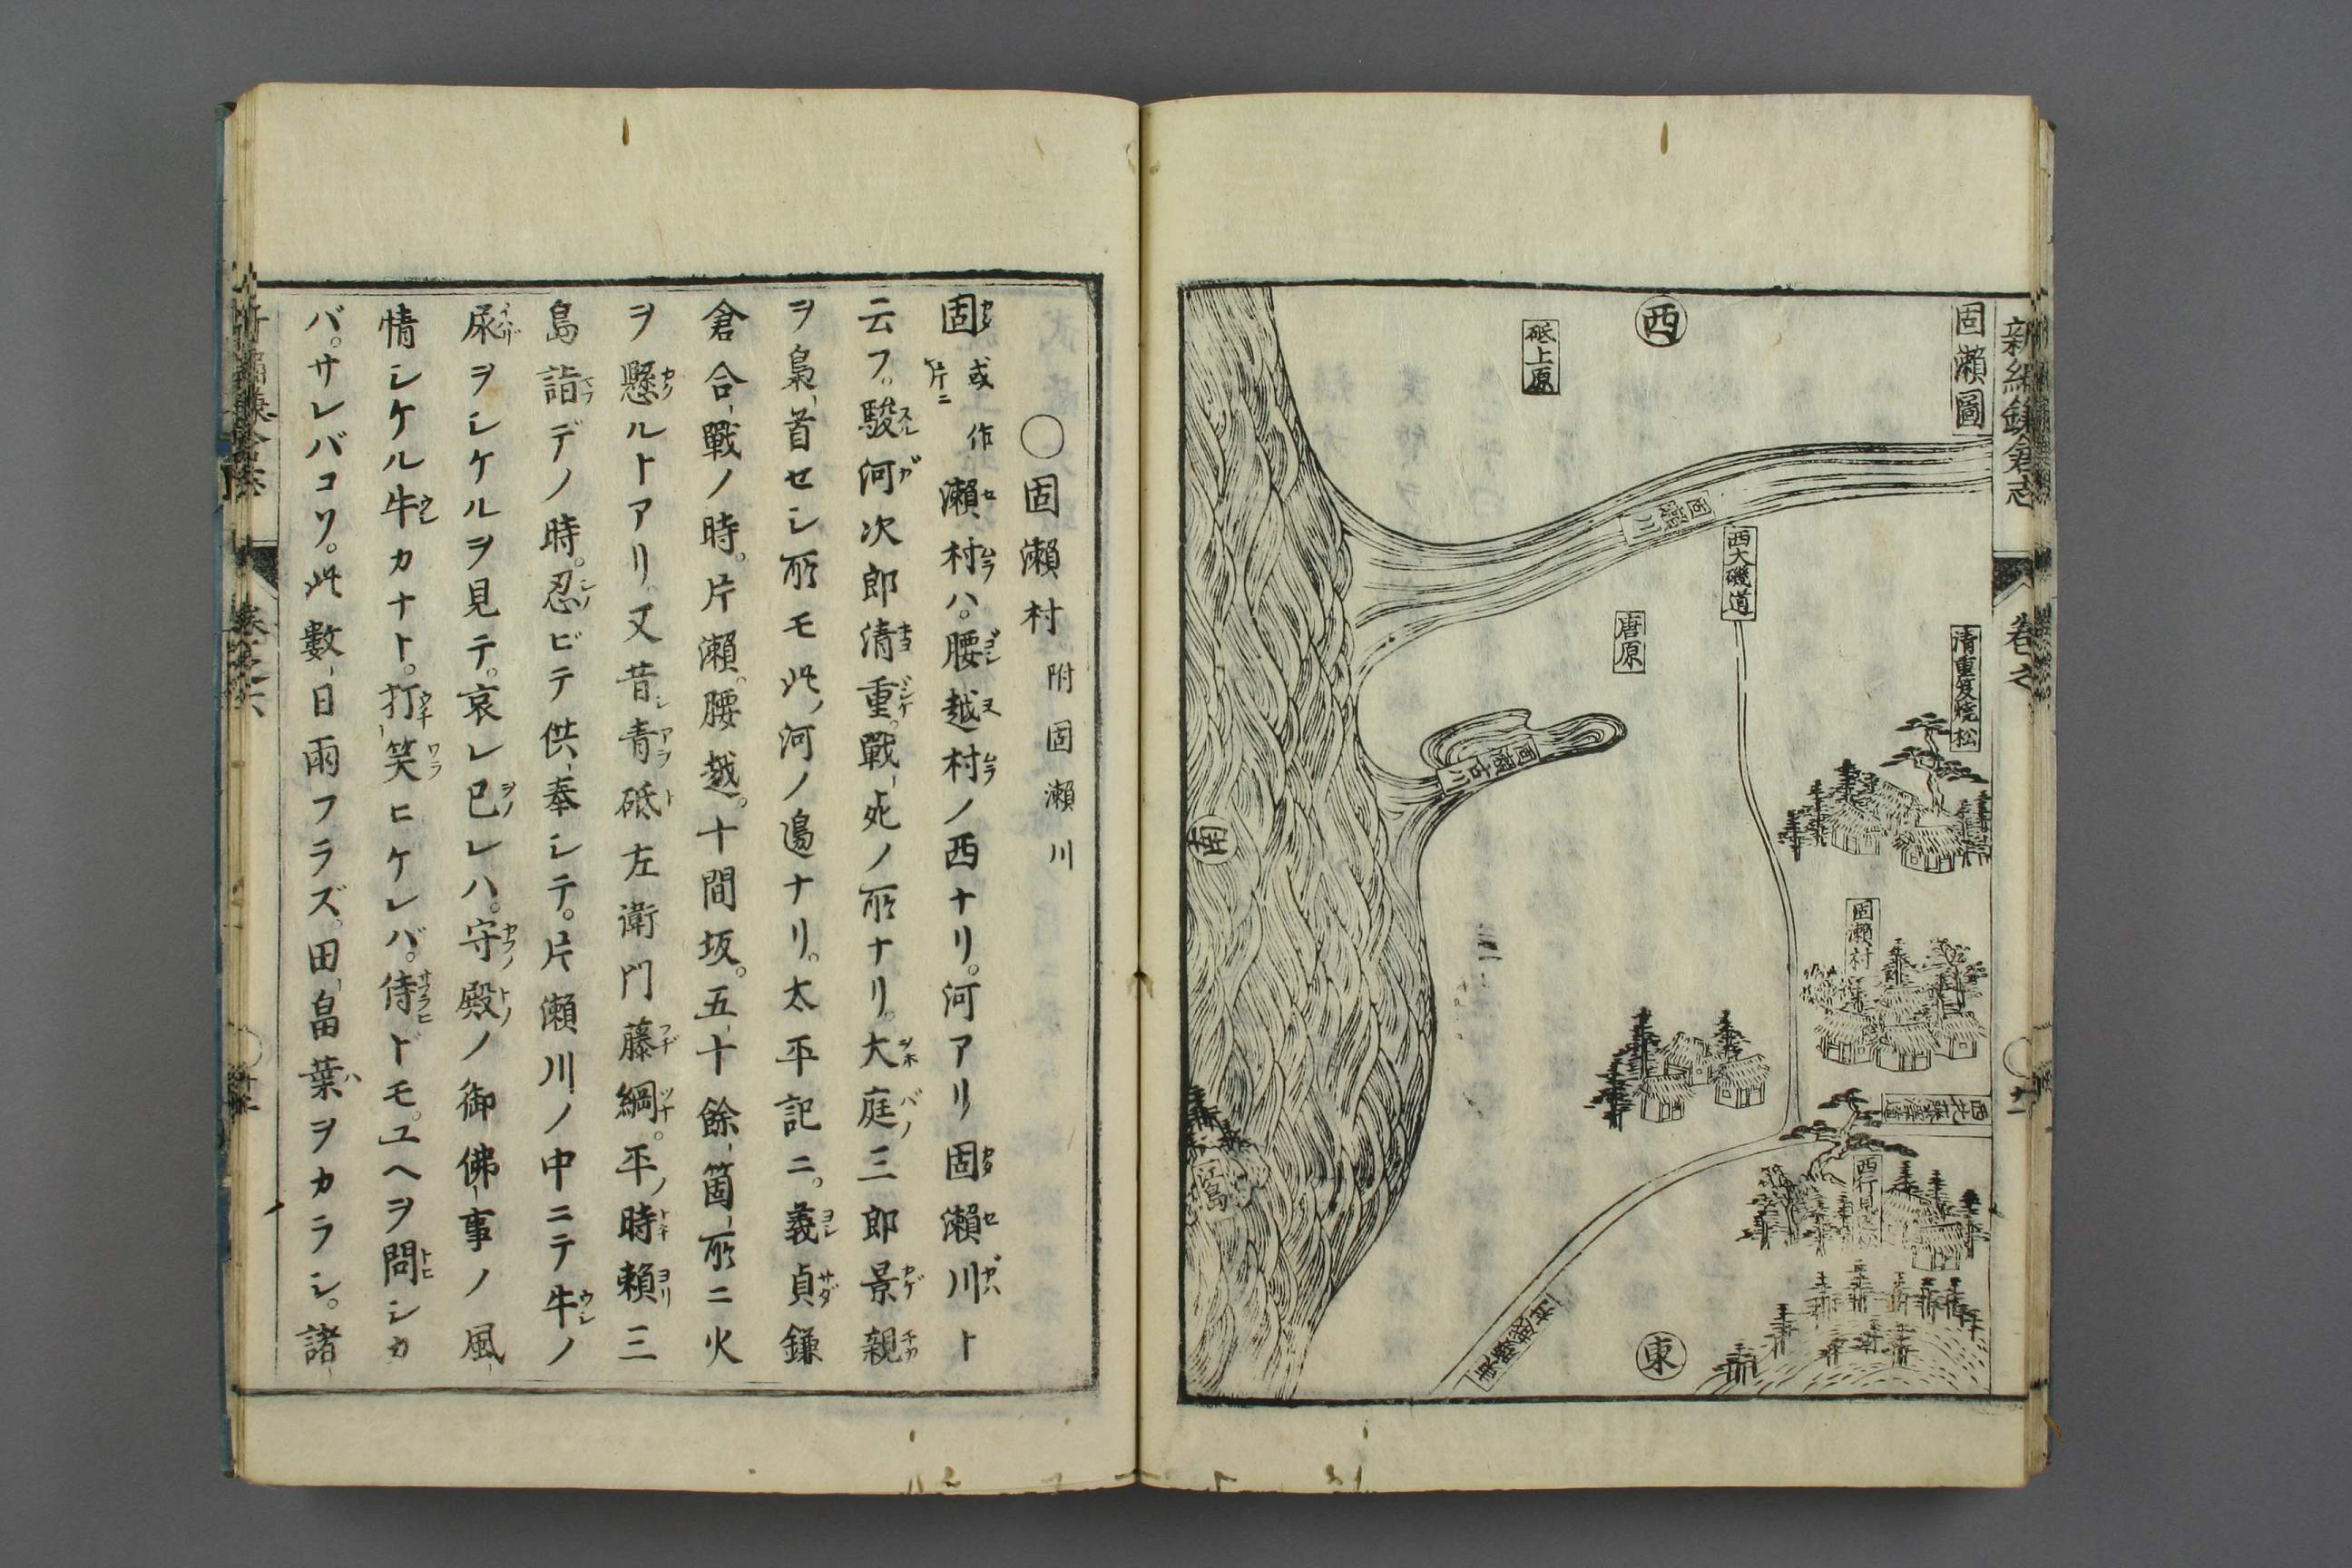 新編鎌倉志
卷之
固瀬圖
清重笈焼松
固瀬村
西行見返松
西
西大磯道
唐原
東
砥上原
固瀬川
固瀬古川
東腰越村
南
〇固瀬村附固瀬川
固或作片ニ瀬村ハ。腰越村ノ西ナリ。河アリ固瀬川ト
云フ。駿河次郎清重。戰死ノ所ナリ。大庭三郎景親
ヲ梟首セシ所モ此ノ河ノ邉ナリ。太平記ニ。義貞鎌
倉合戰ノ時。片瀬。腰越。十間坂。五十餘箇所ニ火
ヲ懸ルトアリ。又昔シ青砥左衛門藤綱。平ノ時頼三
島詣デノ時。忍ビテ供奉シテ。片瀬川ノ中ニテ牛ノ
尿ヲシケルヲ見テ。哀レ已レハ。守殿ノ御佛事ノ風
情シケル牛カナト。打笑ヒケレバ。侍ドモ。ユヘヲ問シカ
バ。サレバコソ。此數日雨フラズ。田畠葉ヲカラシ。諸